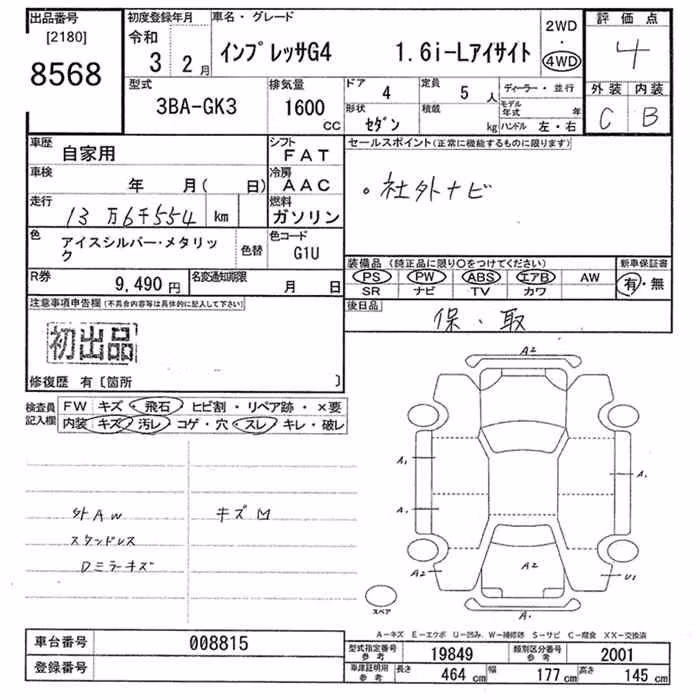 出品番号
[2180]
8568
初度登録年月
令和
3 2月
車名・グレード
インプレッサG4 1.6i-Lアイサイト
2WD
・
4WD
評価点
4
外装 内装
C B
型式
3BA-GK3
排気量
1600
CC
ドア 4
定員 5 人
形状 セダン
積載 kg
ディーラー・並行
モデル年式 年
ハンドル 左・右
車歴 自家用
シフト FAT
車検 年 月( 日)
冷房 AAC
走行 13万6千554 km
燃料 ガソリン
色 アイスシルバー・メタリック
色替
色コード G1U
R券 9,490円
名変通知期限 月 日
セールスポイント(正常に機能するものに限ります)
。社外ナビ
装備品 (純正品に限り○をつけてください)
PS PW ABS エアB AW
SR ナビ TV カワ
新車保証書
有・無
後日品
保・取
注意事項申告欄(不具合内容等は具体的に記入して下さい)
初出品
修復歴 有〔箇所 〕
検査員記入欄
FW キズ・飛石・ヒビ割・リペア跡・×要
内装 キズ・汚レ・コゲ・穴・スレ・キレ・破レ
外AW
スタッドレス
Dミラーキズ
キズM
A2
A1
A1
A1
A2
A2
U1
A1
スペア
A-キズ E-エクボ U-凹み W-補修跡 S-サビ C-腐食 XX-交換済
車台番号 008815
登録番号
型式指定番号 参考 19849
類別区分番号 参考 2001
車庫証明用 参考 長さ 464 cm 幅 177 cm 高さ 145 cm